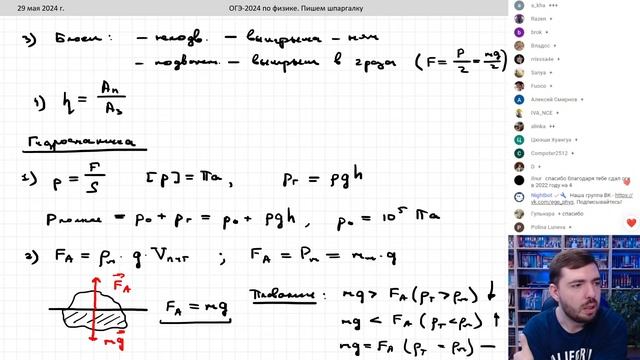 29 мая 2024 г.
ОГЭ-2024 по физике. Пишем шпаргалку
3) Блоки: – неподв. – выигрыша – нет
– подвижн. – выигрыш в 2 раза (F = P/2 = mg/2)
4) η = Aп/Aз
Гидростатика
1) p = F/S [p] = Па, pг = ρgh
pполное = p₀ + pг = p₀ + ρgh, p₀ = 10⁵ Па
2) FA = ρж · g · Vпчт ; FA = Pж = mж · g
FA
mg
FA = mg
Плавание: mg > FA (ρт > ρж) ↓
mg < FA (ρт < ρж) ↑
mg = FA (ρт = ρж) —
a_kha +++
Razen +
brok +
Владос +
Sanya +
Fuoco +
Алексей Смирнов +
IVA_NCE +
alinka ++
Computer2512 +
D +
спасибо благодаря тебе сдал огэ в 2022 году на 4
Nightbot Наша группа ВК - https://vk.com/ege_phys. Подписывайтесь!
Гульнара + спасибо
Polina Luneva +
CALIFORNI